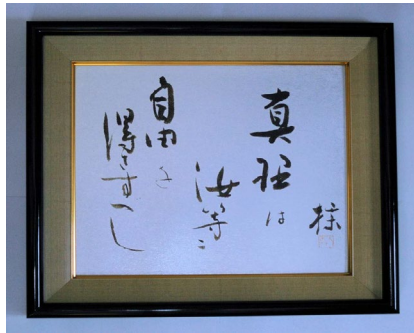 真理は
汝等に
自由を
得さすへし